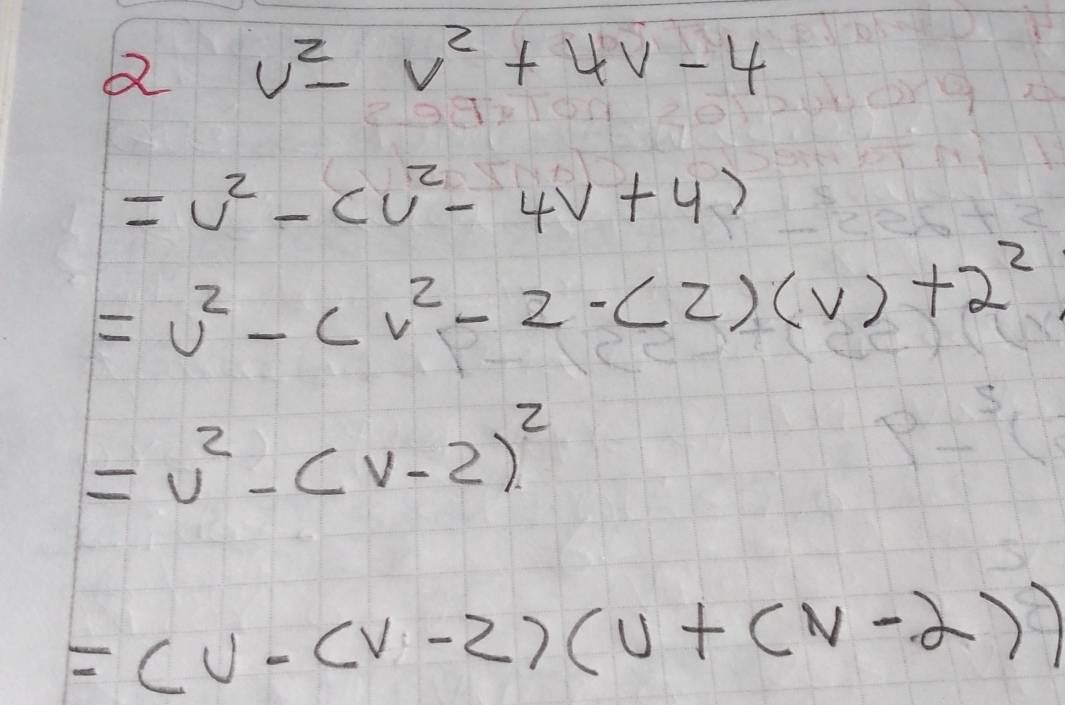 2 u² - v² + 4v - 4
= u² - (u² - 4v + 4)
= u² - (v² - 2 · (2)(v) + 2²
= u² - (v - 2)²
= (u - (v - 2)(u + (v - 2))